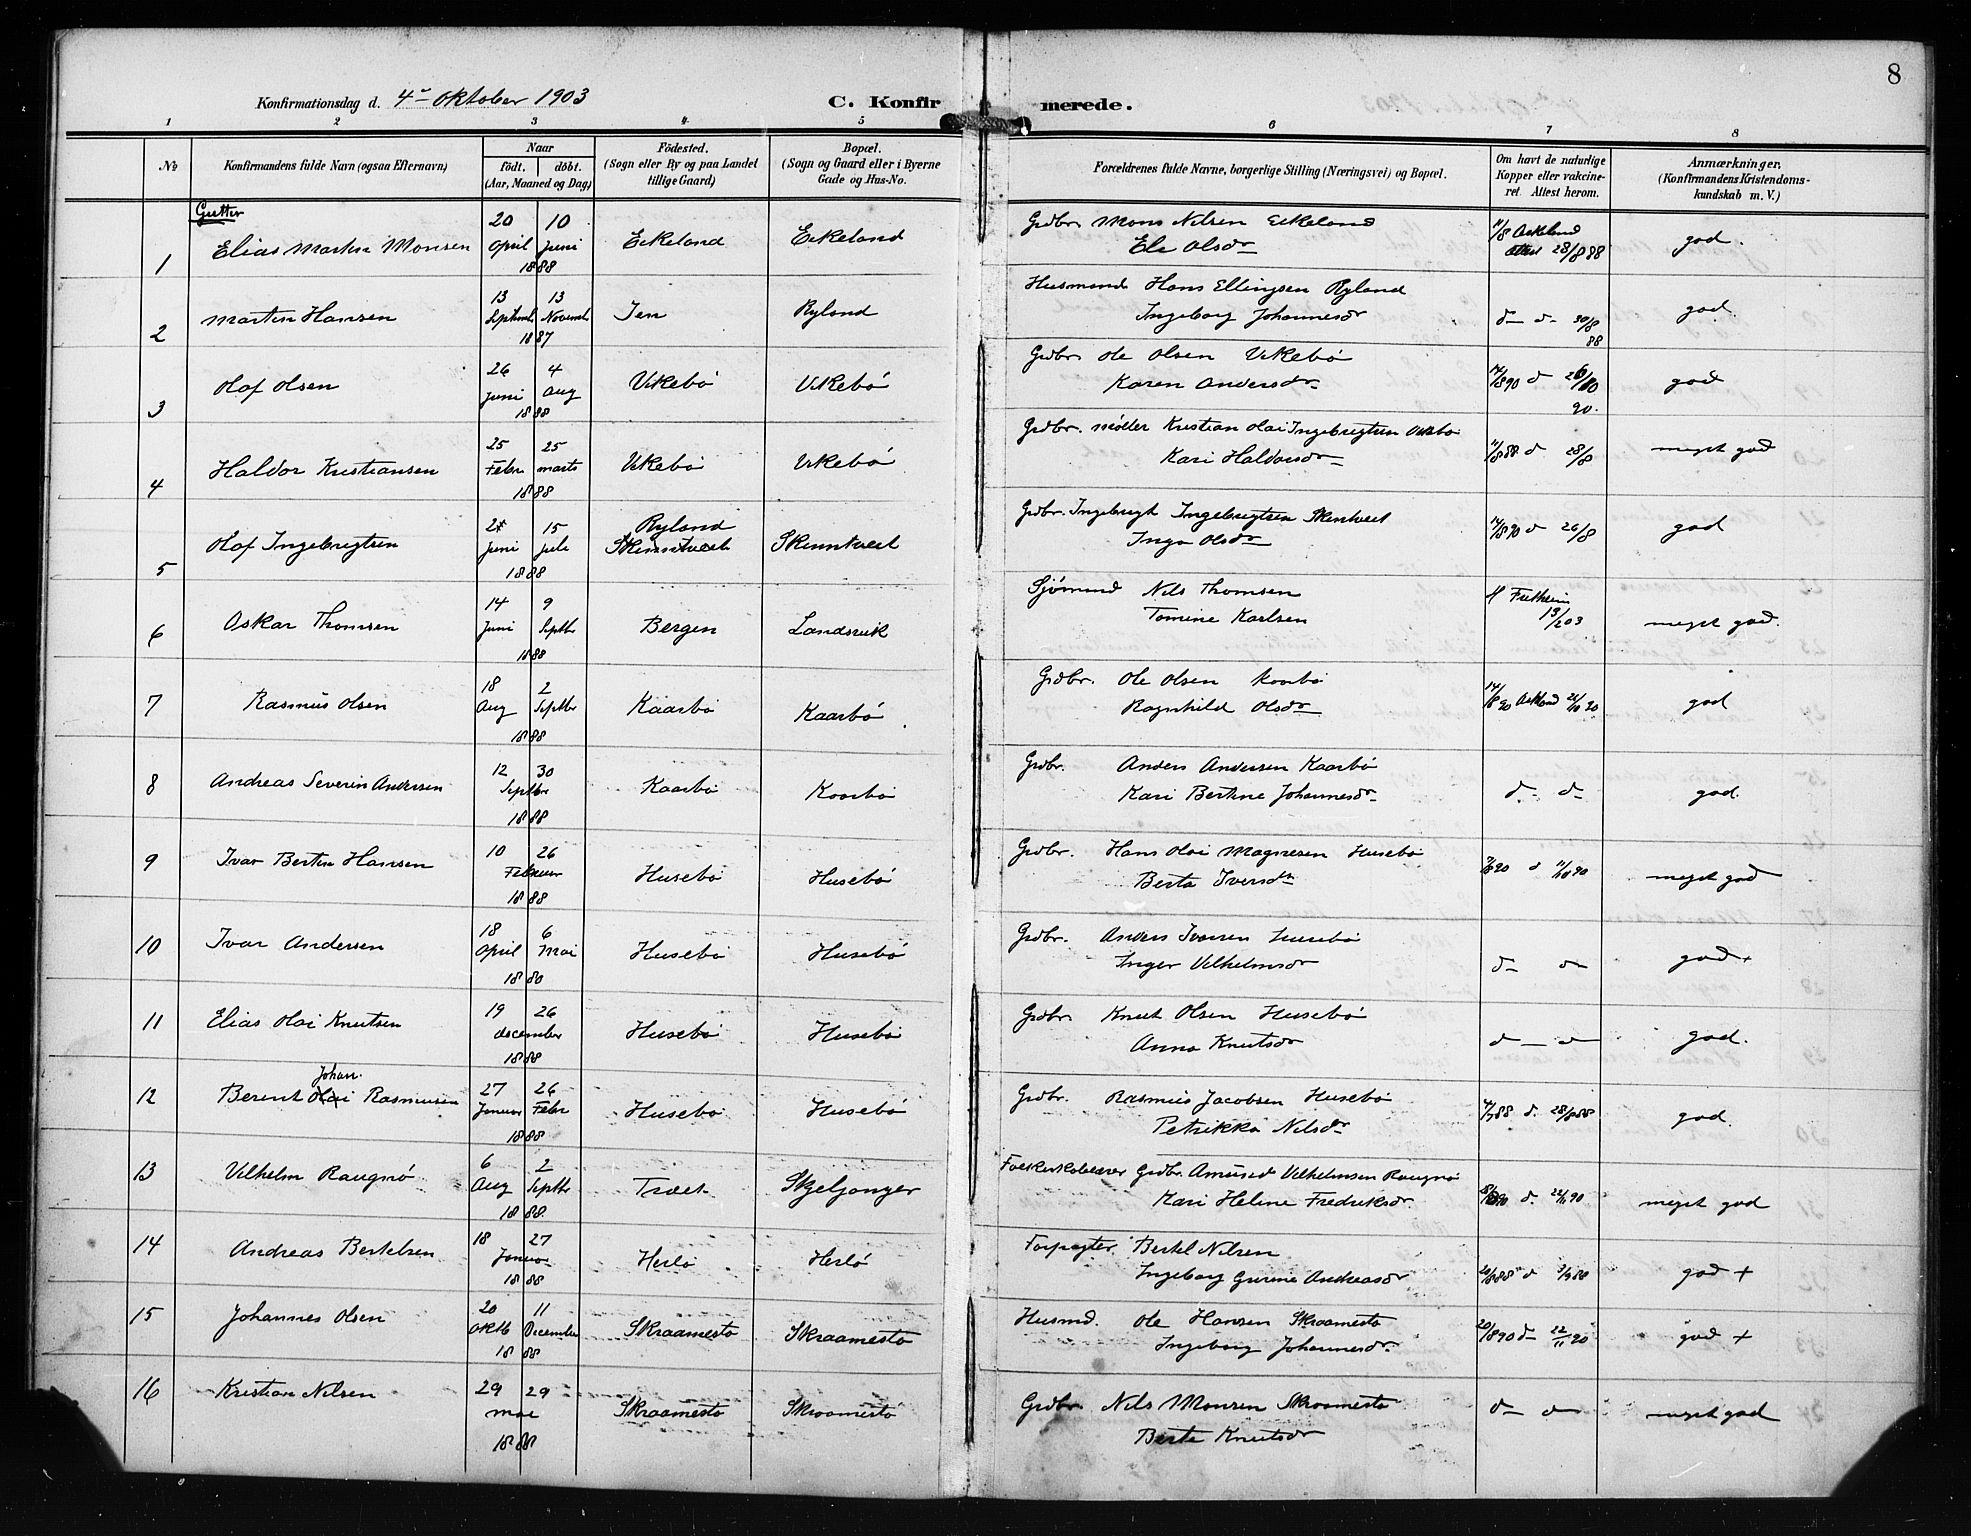 8
Konfirmationsdag d. 4de Oktober 1903 C. Konfirmerede.
1 2 3 4. 5 6 7 8
No Konfirmandens fulde Navn (ogsaa Efternavn) Naar født. døbt. (Aar, Maaned og Dag) Fødested. (Sogn eller By og paa Landet tillige Gaard) Bopæl. (Sogn og Gaard eller i Byerne Gade og Hus-No. Forældrenes fulde Navne, borgerlige Stilling (Næringsvei) og Bopæl. Om havt de naturlige Kopper eller vakcineret. Attest herom. Anmærkninger. (Konfirmandens Kristendomskundskab m. V.)
Gutter
1 Elias Martin Monsen 20 April 10 Juni 1888 Eikeland Eikeland Grdbr. Mons Nilsen Eikeland
Ele Olsdr 11/8 Askeland Attest 28/8 88 god.
2 Martin Hansen 13 Septemb 13 Novemb 1887 Ryland Husmand Hans Ellingsen Ryland
Ingeborg Johannesdr d– d– 30/8 88 god.
3 Olaf Olsen 26 Juni 4 Aug 1888 Vikebø Vikebø Grdbr. Ole Olsen Vikebø
Karen Andersdr god
4 Haldor Kristiansen 25 Febr 25 Marts 1888 Vikebø Vikebø Grdbr. Møller Kristian Olai Ingebrigtsen Vikebø
Kari Haldorsdr 11/8 88 d 28/8 meget god
5 Olaf Ingebrigtsen Juni 15 Juli 1888 Ryland Skinntveit Skinntveit Grdbr. Ingebrigt Ingebrigtsen Skintveit
Inga Olsdr 14/8 90 d 26/8 god
6 Oskar Thomsen 14 Juni 9 Septbr 1888 Bergen Landsvik Sjømand Nils Thomsen
Tomine Karlsen Fretheim 13/2 03 meget god.
7 Rasmus Olsen 18 Aug 2 Septbr 1888 Kaarbø Kaarbø Grdbr. Ole Olsen Kaarbø
Ragnhild Olsdr 14/8 90 Askland god
8 Andreas Severin Andersen 12 30 Septbr 1888 Kaarbø Kaarbø Grdbr. Anders Andersen Kaarbø
Kari Bertine Johannesdr d– d– god.
9 Ivar Bertin Hansen 10 26 Februar 1888 Husebø Husebø Grdbr. Hans Olai Magnesen Husebø
Berta Iversdr d 11/10 90 meget god
10 Ivar Andersen 18 April 6 Mai 1880 Husebø Husebø Grdbr. Anders Iversen Husebø
Inger Vilhelmsdr d– d– god +
11 Elias Olai Knutsen 19 26 december 1888 Husebø Husebø Grdbr. Knut Olsen Husebø
Anna Knutsdr d – d– god.
12 Berent Olai Johan. Rasmussen 27 Januar 26 Febr 1888 Husebø Husebø Grdbr. Rasmus Jacobsen Husebø
Petrikka Nilsdr d. 28/8 88 god.
13 Vilhelm Raugnø 6 Aug 2 Septbr 1888. Træet. Skjeljanger Folkeskolelærer Grdbr. Amund Vilhelmsen Raugnø
Kari Helene Fredriksdr. meget god
14 Andreas Bertelsen 18 27 Januar 1888 Herlø Herlø Forpagter Bertel Nilsen
Ingeborg Gurine Andreasdr god +
15 Johannes Olsen 20 Oktb 11 December 1888 Skraamestø Skraamestø Husmd. Ole Hansen Skraamestø
Ingeborg Johannesdr. 20/8 90 d– 22/11 90 god +
16 Kristian Nilsen 29 29 Mai 1888 Skraamestø Skraamestø Grdbr. Nils Monsen Skraamestø
Berta Knutsdr d– d– meget god